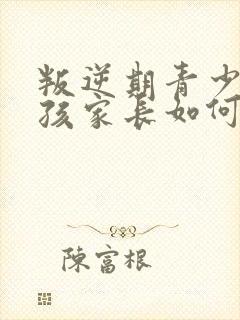 叛逆期青少
孩家长如何
陳富根